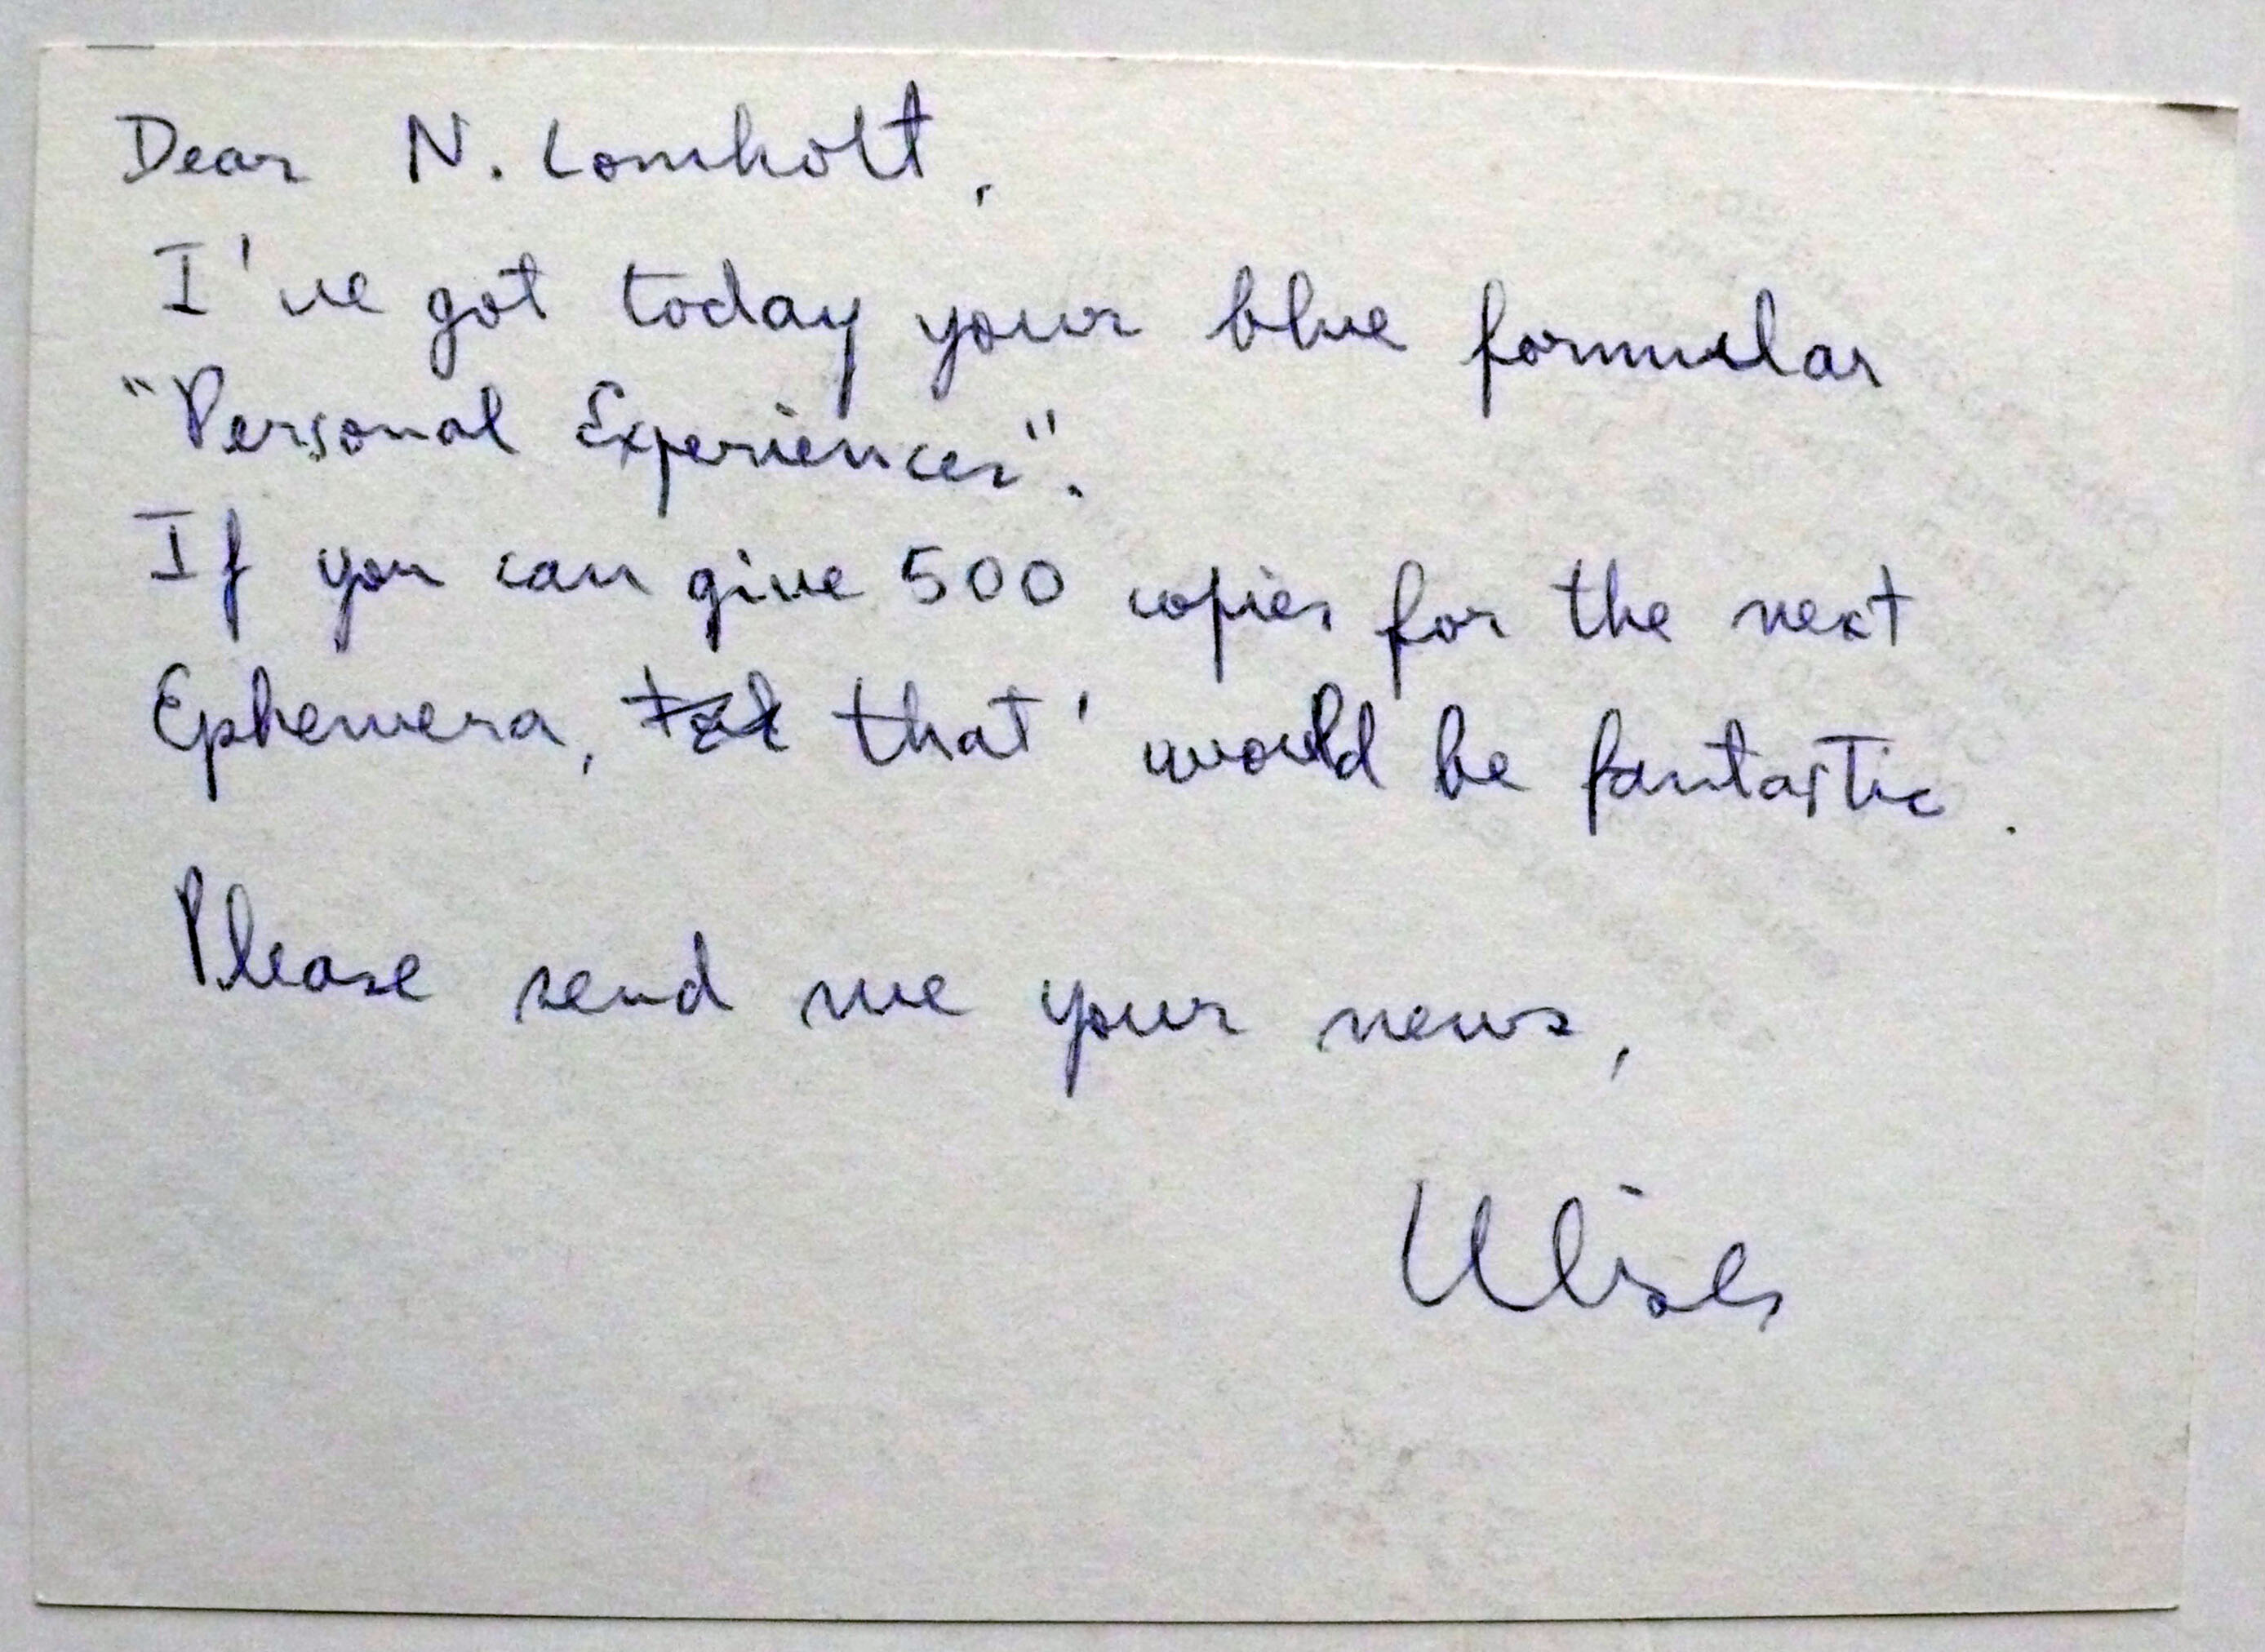 Dear N. Lomholt,
I've got today your blue formular
"Personal Experiences".
If you can give 500 copies for the next
Ephemera, that' would be fantastic.
Please send me your news,
Ulises